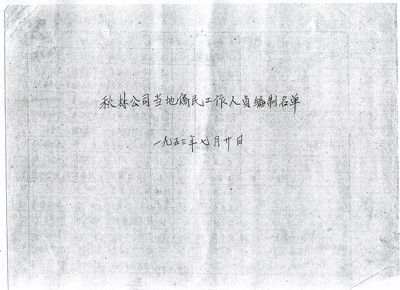 秋林公司当地侨民工作人员编制名单
一九五三年七月廿日